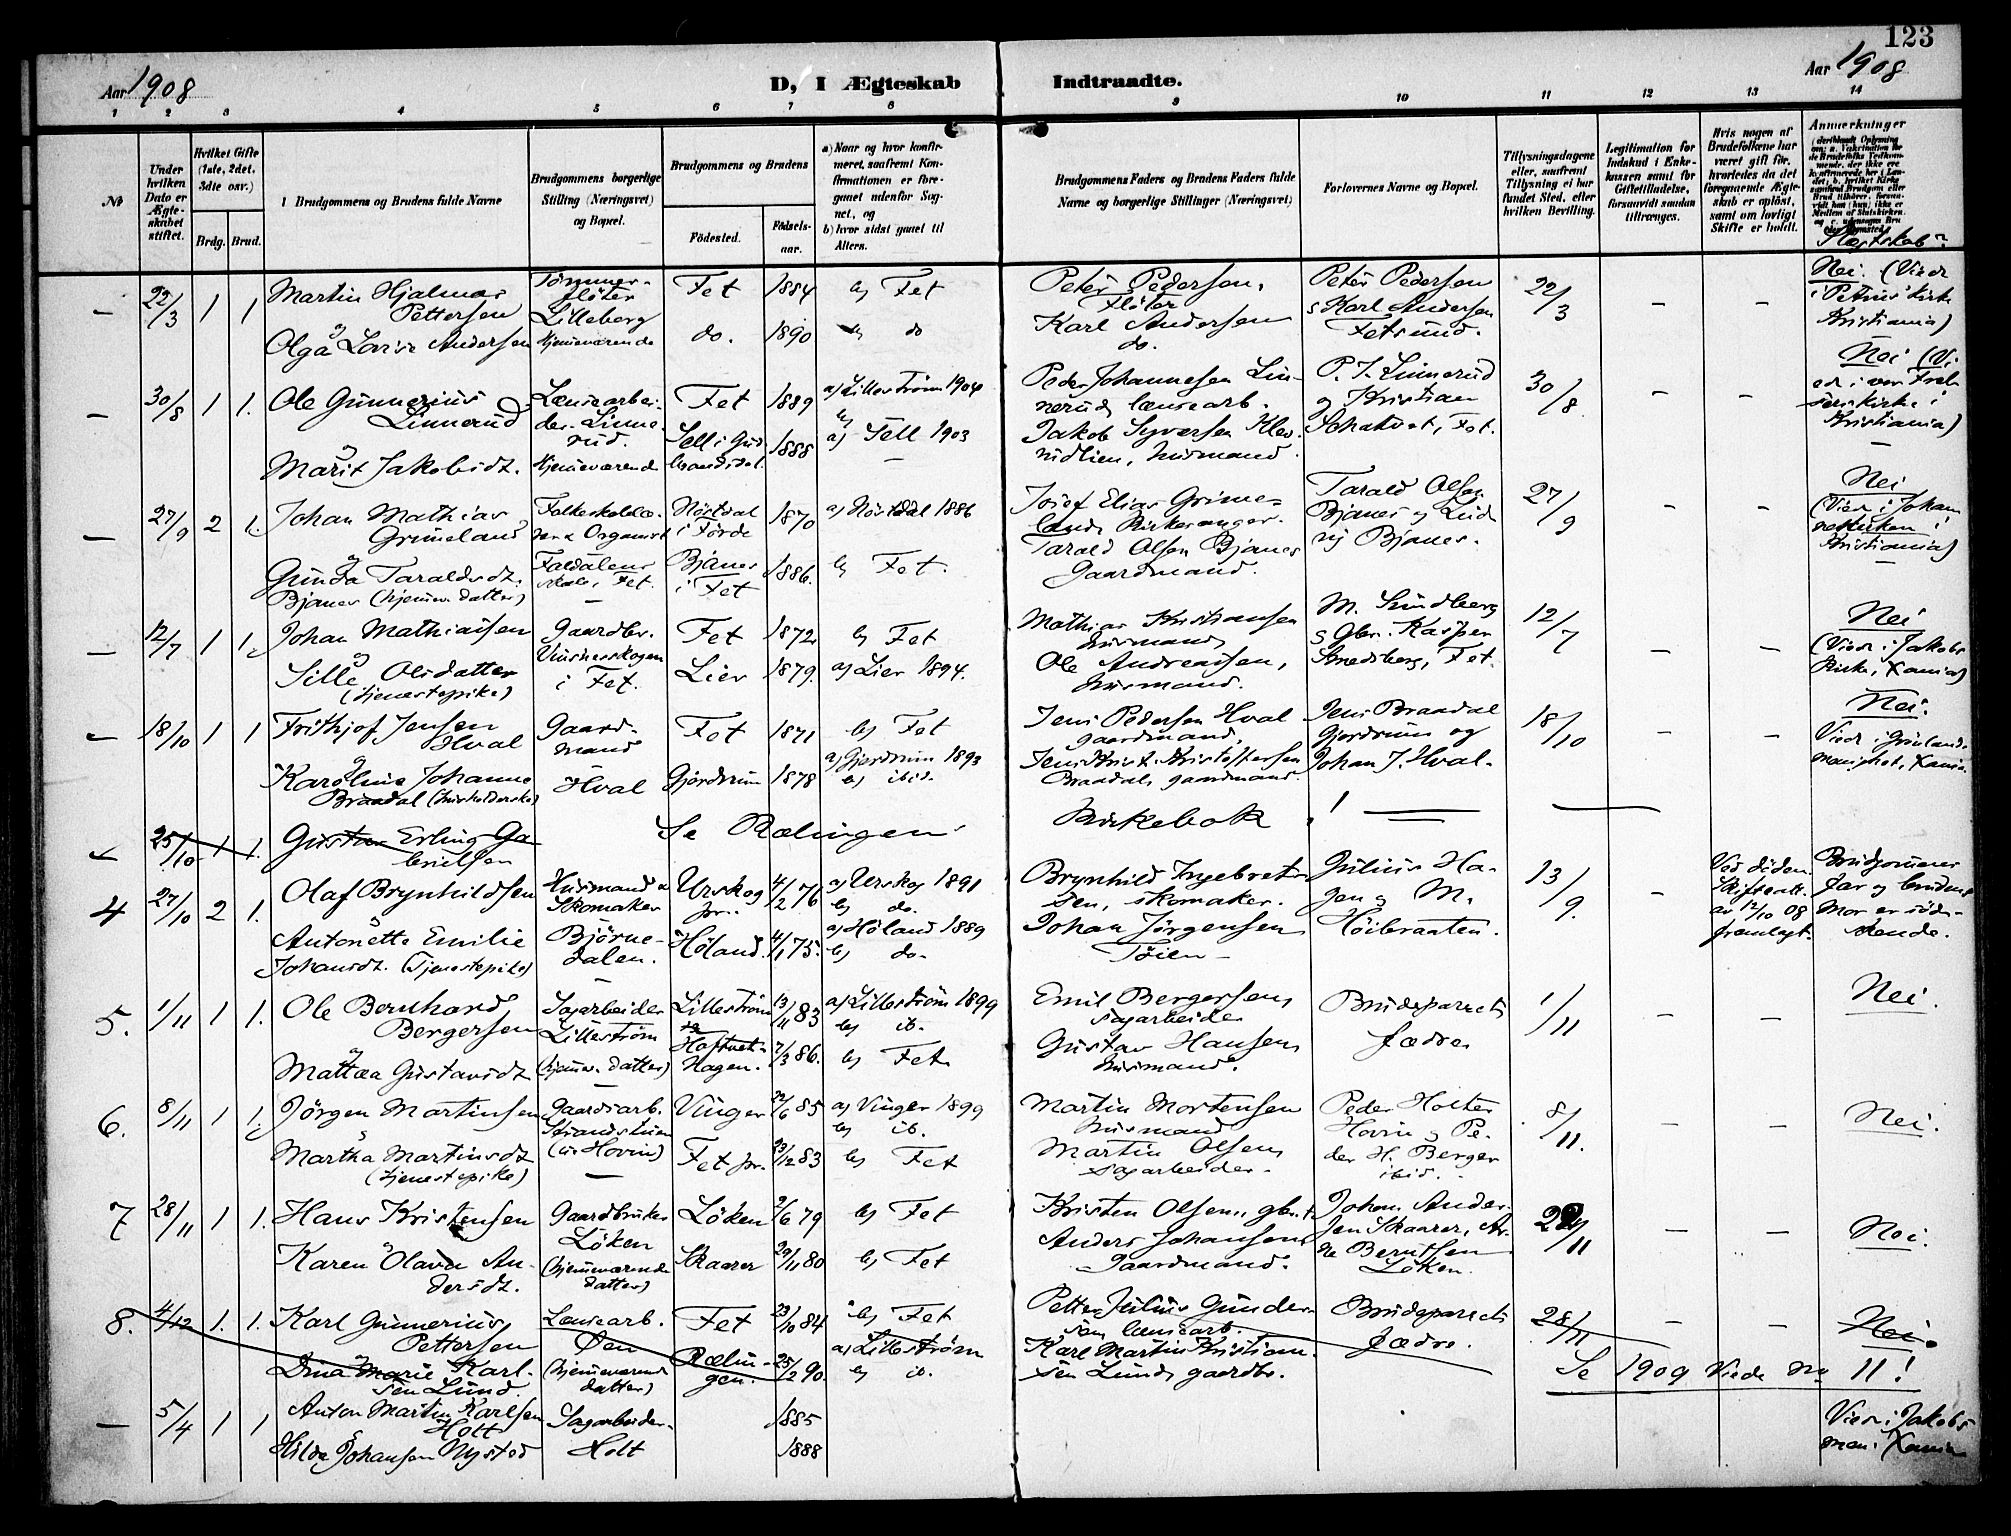 123
Aar 1908
D, I Ægteskab
Indtraadte.
Aar 1908
1 2 3 4 5 6 7 8 9 10 11 12 13 14
No
Under hvilken Dato er Ægteskabet stiftet.
Hvilket Gifte (1ste, 2det, 3die osv.)
Brdg. Brud.
Brudgommens og Brudens fulde Navne
Brudgommens borgerlige Stilling (Næringsvei) og Bopæl.
Brudgommens og Brudens
Fødested.
Fødselsaar.
a) Naar og hvor konfirmeret, saafremt Konfirmationen er foregaaet udenfor Sognet, og
b) hvor sidst gaaet til Alters.
Brudgommens Faders og Brudens Faders fulde Navne og borgerlige Stillinger (Næringsvei)
Forlovernes Navne og Bopæl.
Tillysningsdagene eller, saafremt Tillysning ei har fundet Sted, efter hvilken Bevilling.
Legitimation for Indskud i Enkekassen samt for Giftetilladelse, forsaavidt saadan tiltrænges.
Hvis nogen af Brudefolkene har været gift før, hvorledes da det foregaaende Ægteskab er opløst, samt om lovligt Skifte er holdt.
Anmærkninger
Slægtskab?
— 22/3 1 1 Martin Hjalmar Pettersen
Tømmerfløter Lilleberg
Fet 1884 b) Fet
Peter Pedersen, Fløter
Peter Pedersen & Karl Andersen Fetsund.
22/3 — — Nei. (Viet i Petrus Kirke Kristiania)
og Olga Lovise Andersen hjemeværende
do. 1890 b) do
Karl Andersen do.
— 30/8 1 1. Ole Gunnerius Linnerud
Lænsearbeider Linnerud.
Fet 1889 a) Lillestrøm 1904 b)
Peder Johannesen Linnerud, lænsearb.
P. J. Linnerud og Kristian Fet.
30/8 — — Nei (Viet i vor Frelsers kirke i Kristiania)
og Marit Jakobsdt. hjemeværende
Sell i Gudbrandsdal. 1888 a) Sell 1903 —
Jakob Syversen husmand
— 27/9 2 1. Johan Mathias Grimeland
Folkeskolelærer & Organist
i Førde 1870 a) 1886
Josef Elias Grimeland, Kirkesanger.
Tarald Olsen Bjanes og Ludvig Bjanes.
27/9 — — Nei (Viet i Johanneskirken i Kristiania) —
og Gunda Taraldsdt. Bjanes (hjemev. datter)
Faldalens skole, Fet. —
Bjanes i Fet 1886. b) Fet.
Tarald Olsen Bjanes Gaardmand.
— 12/7 1 1. Johan Mathiassen
Gaardbr. i Fet.
Fet 1872 b) Fet
Mathias Kristiansen husmand
M. Sundberg & Gbr. Kasper Fet.
12/7 — — Nei (Viet i Jakobs Kirke, Xania)
og Sille Olsdatter (tjenestepike)
Lier 1879. a) Lier 1894.
Ole Andreassen, husmand.
— 18/10 1 1 Frithjof Jensen Hval
Gaardmand Hval
Fet 1871 b) Fet
Jens Pedersen Hval gaardmand,
Jens Braadal Gjerdrum og Johan J. Hval.
18/10 — — Nei. Viet i Grønlands menighet, Xania.
og Karoline Johanne Braadal (husholderske)
Gjerdrum 1878 a) Gjerdrum 1893 b) ibid.
Kristoffersen Braadal, gaardmand.
25/10 1 1. Gustav Erling Gabrielsen
Se Rælingen Kirkebok !
4 27/10 2 1. Olaf Brynhildsen
Husmand & Skomaker Bjørnedalen. —
Urskog pr. 4/2 76 a) Urskog 1891 b) do.
Brynhild Ingebretsen, skomaker.
Julius Hagen & M. Høibraaten.
13/9. — Ved døden Skifteatt. av 12/10 08 fremlagt.
Brudgommens far og brudens Mor er sødskende.
og Antonette Emilie Johansdt. (Tjenestepike)
Høland. 4/1 75. a) Høland 1889 b) do.
Johan Jørgensen Tøien —
5. 1/11 1 1. Ole Bernhard Bergersen
Sagarbeider Lillestrøm
Lillestrøm 13/11 83 a) Lillestrøm 1899 b) ib.
Emil Bergersen, sagarbeider
Brudeparrets fædre
1/11 — — Nei.
og Mattea Gustavsdt. (hjemev. datter) —
7/3 86. b) Fet
Gustav Hansen, husmand.
6. 8/11 1 1. Jørgen Martinsen
Gaardsarb. (u/ Hovin) —
Vinger 22/6 85 a) Vinger 1899 b) ib.
Martin Mortensen husmand
Peder Holter Hovin & Peder H. Berger ibid.
8/11. — — Nei.
og Martha Martinsdt. (tjenestepike)
Fet pr. 23/12 83 b) Fet
Martin Olsen, sagarbeider.
7 28/11 1 1. Hans Kristensen
Gaardbruker Løken
Løken 2/6 79 b) Fet
Kristen Olsen, gbr.
Johan Andersen Skaarer, Arne Berntsen Løken.
28/11 — — Nei.
og Karen Olava Andersdt. (hjemeværende datter)
Skaarer 29/11 80 b) Fet
Anders Johansen, Gaardmand.
8. 4/12 1. 1. Karl Gunnerius Pettersen
Lænsearb. Øen
Fet 23/10 84 b) Fet
Petter Julius Gundersen, lænsearb.
Brudeparrets fædre.
28/11 — — Nei.
og Dina Marie Karlsen Lund. (hjemeværende datter)
Rælingen. 25/2 90 a) Lillestrøm b) ib.
Karl Martin Kristiansen Lund, gaardbr.
Se 1909 Viede No 11!
— 5/4 1 1 Anton Martin Karlsen Holt
Sagarbeider Holt
1885
Viet i Jakobs men. Xania
og Hilda Johansen Nystad
1888